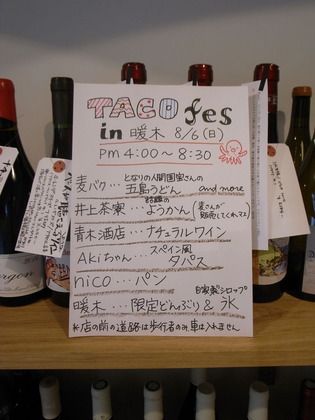 TACO fes
in 暖木 8/6(日)
PM 4:00〜8:30
麦バク… となりの人間国宝さんの
五島うどん and more
井上茶寮… 話題の
ようかん (葉さんが販売してくれマス)
青木酒店… ナチュラルワイン
AKiちゃん… スペイン風
タパス
nico… パン
暖木… 限定どんぶり & 自家製シロップ
氷
※店の前の道路は歩行者のみ、車は入れません